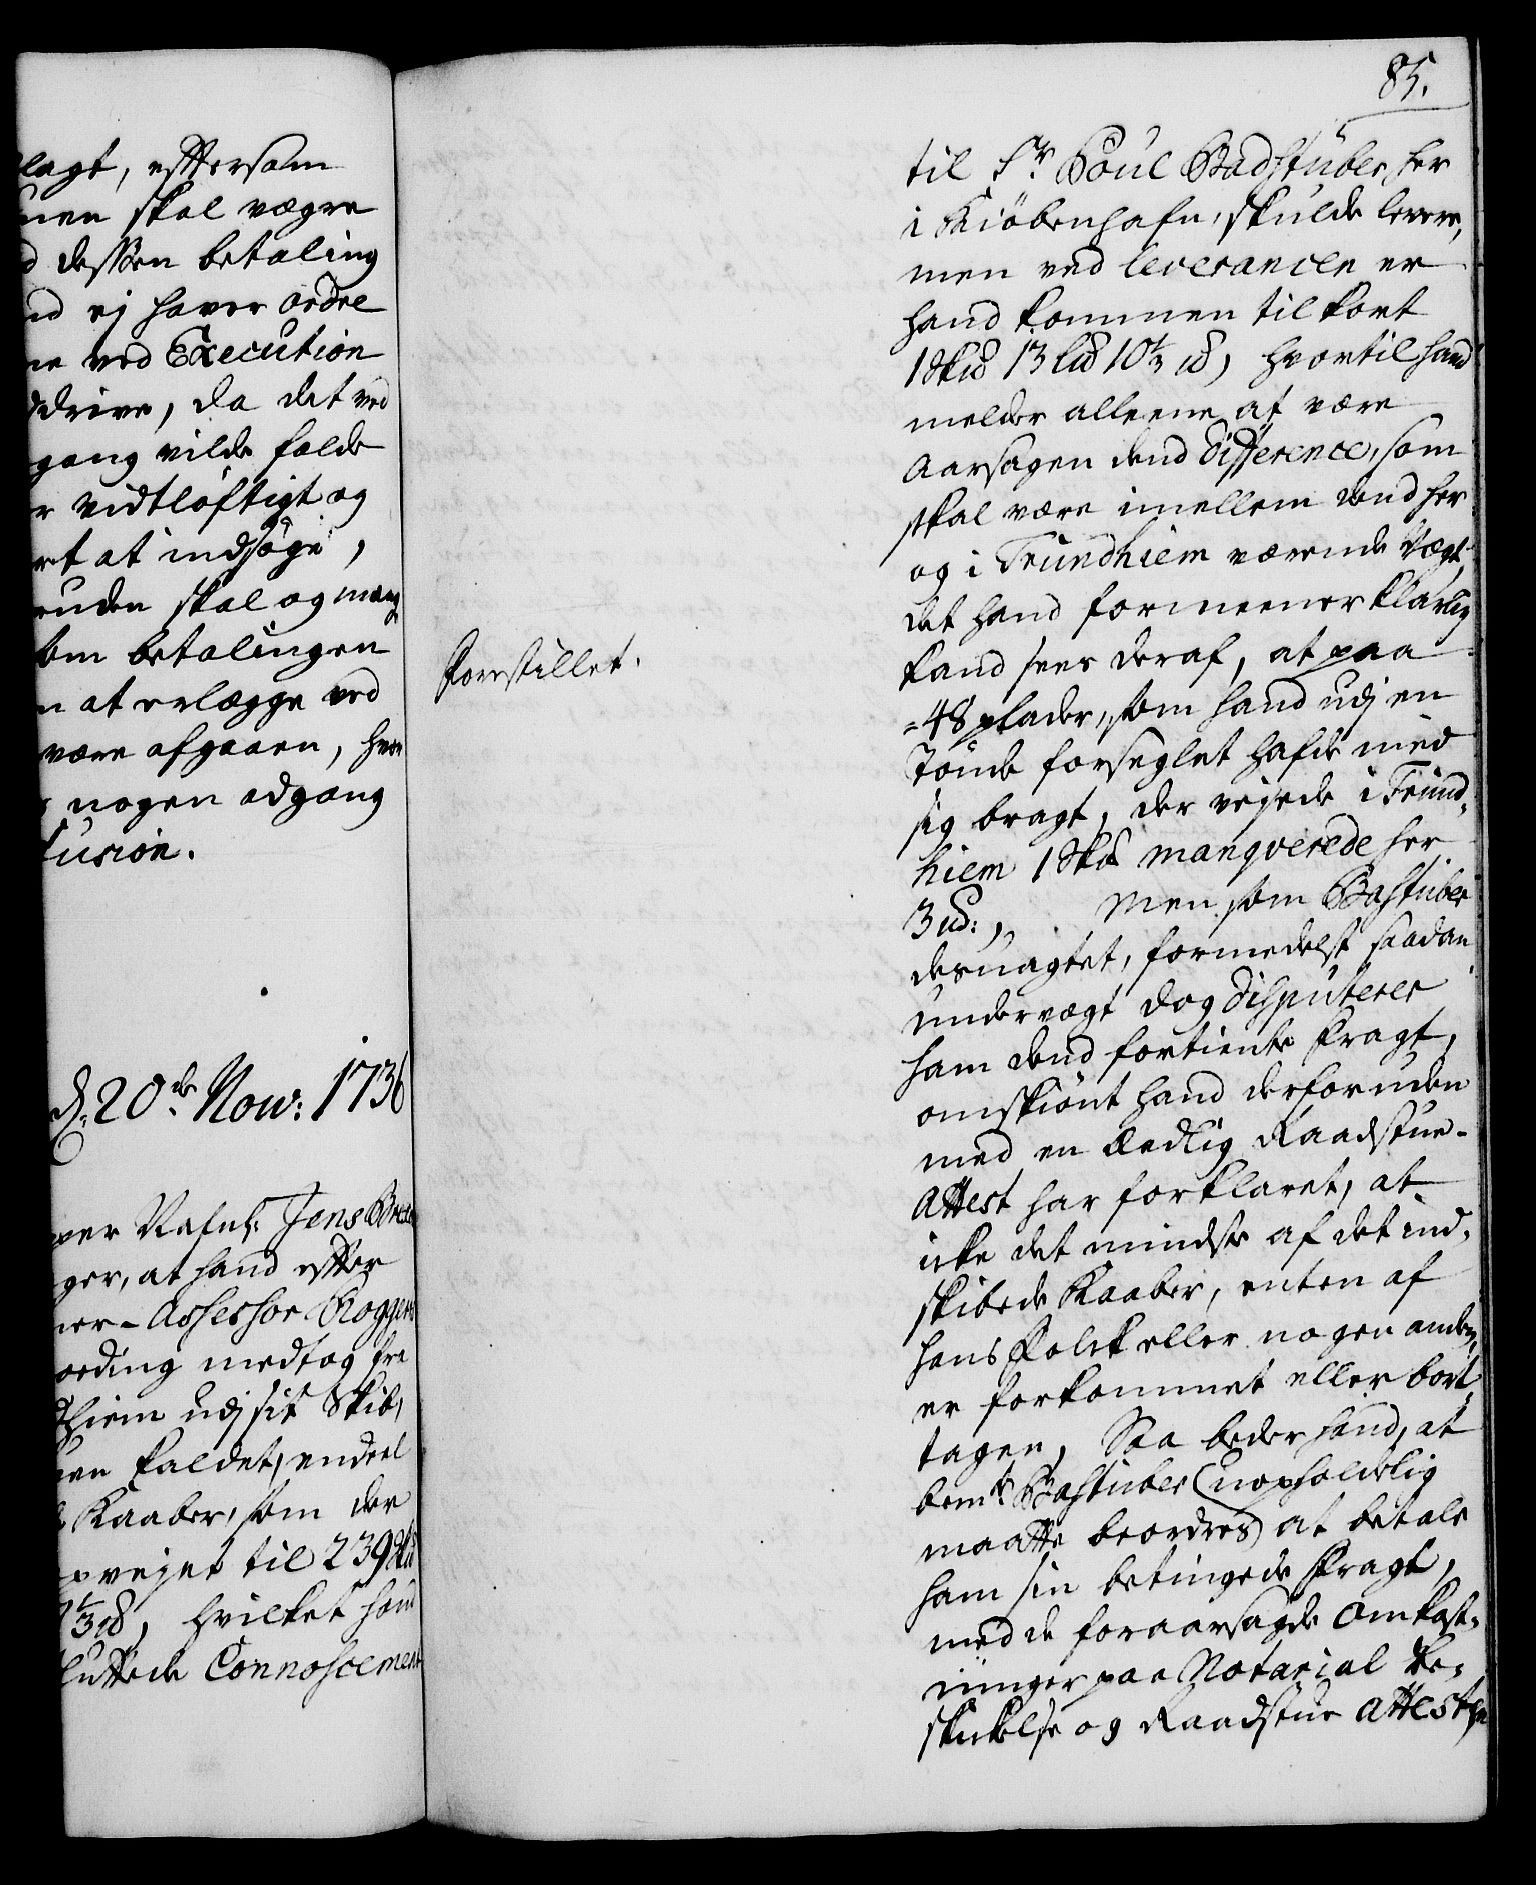 lagt, efftersom
nen skal vægre
d dessen betaling
nd ej haver ordre
ne ved Execution
ddrive, da det ved
gang vilde falde
r vidtløftigt og
rt at indsøge,
ruden skal og mang
om betalingen
n at erlægge ved
være afgaaen, hvor
nogen adgang
lusion.
d. 20de Nov: 1736
per Nafnl: Jens Brede
ger, at hand effter
ner-Assessor Roggers
ording medtog fra
hiem udj sit Skib,
nen kaldet, endeel
Kaaber, som der
prejet til 239 Sk℔
1/3 ℔, hvilket hand
luttede Connoscement
85.
til Sr. Poul Badstuber, her
i Kiöbenhafn, skulde levere,
men ved leverancen er
hand kommen til kort
1 Sk℔ 13 L℔ 10 1/3 ℔, hvortil hand
melder alleene at være
Aarsagen dend Difference, som
skal være imellem dend her
og i Trundhiem værende Vægt,
det hand formeener klarlig
kand sees deraf, at paa
Forestillet.
48 plader, som hand udj en
Tønde forseglet hafde med
sig bragt, der vejede i Trund-
hiem 1 Sk℔ manqverede her
3 ℔:, Men som Bastuber
desuagtet, formedelst saadan
undervægt dog disputerer
ham dend fortiente Fragt,
omskiønt hand derforuden
med en Eedlig Raadstue-
Attest har forklaret, at
icke det mindste af det ind-
skibede Kaaber, enten af
hans Folck eller nogen anden,
er forkommet eller bort-
tagen, Saa beder hand, at
bemte Bastuber (uopholdelig
maatte beordres) at betale
ham sin betingede Fragt,
med de foraarsagede Omkost-
ninger paa Notarial be-
skickelse og Raadstue Attest